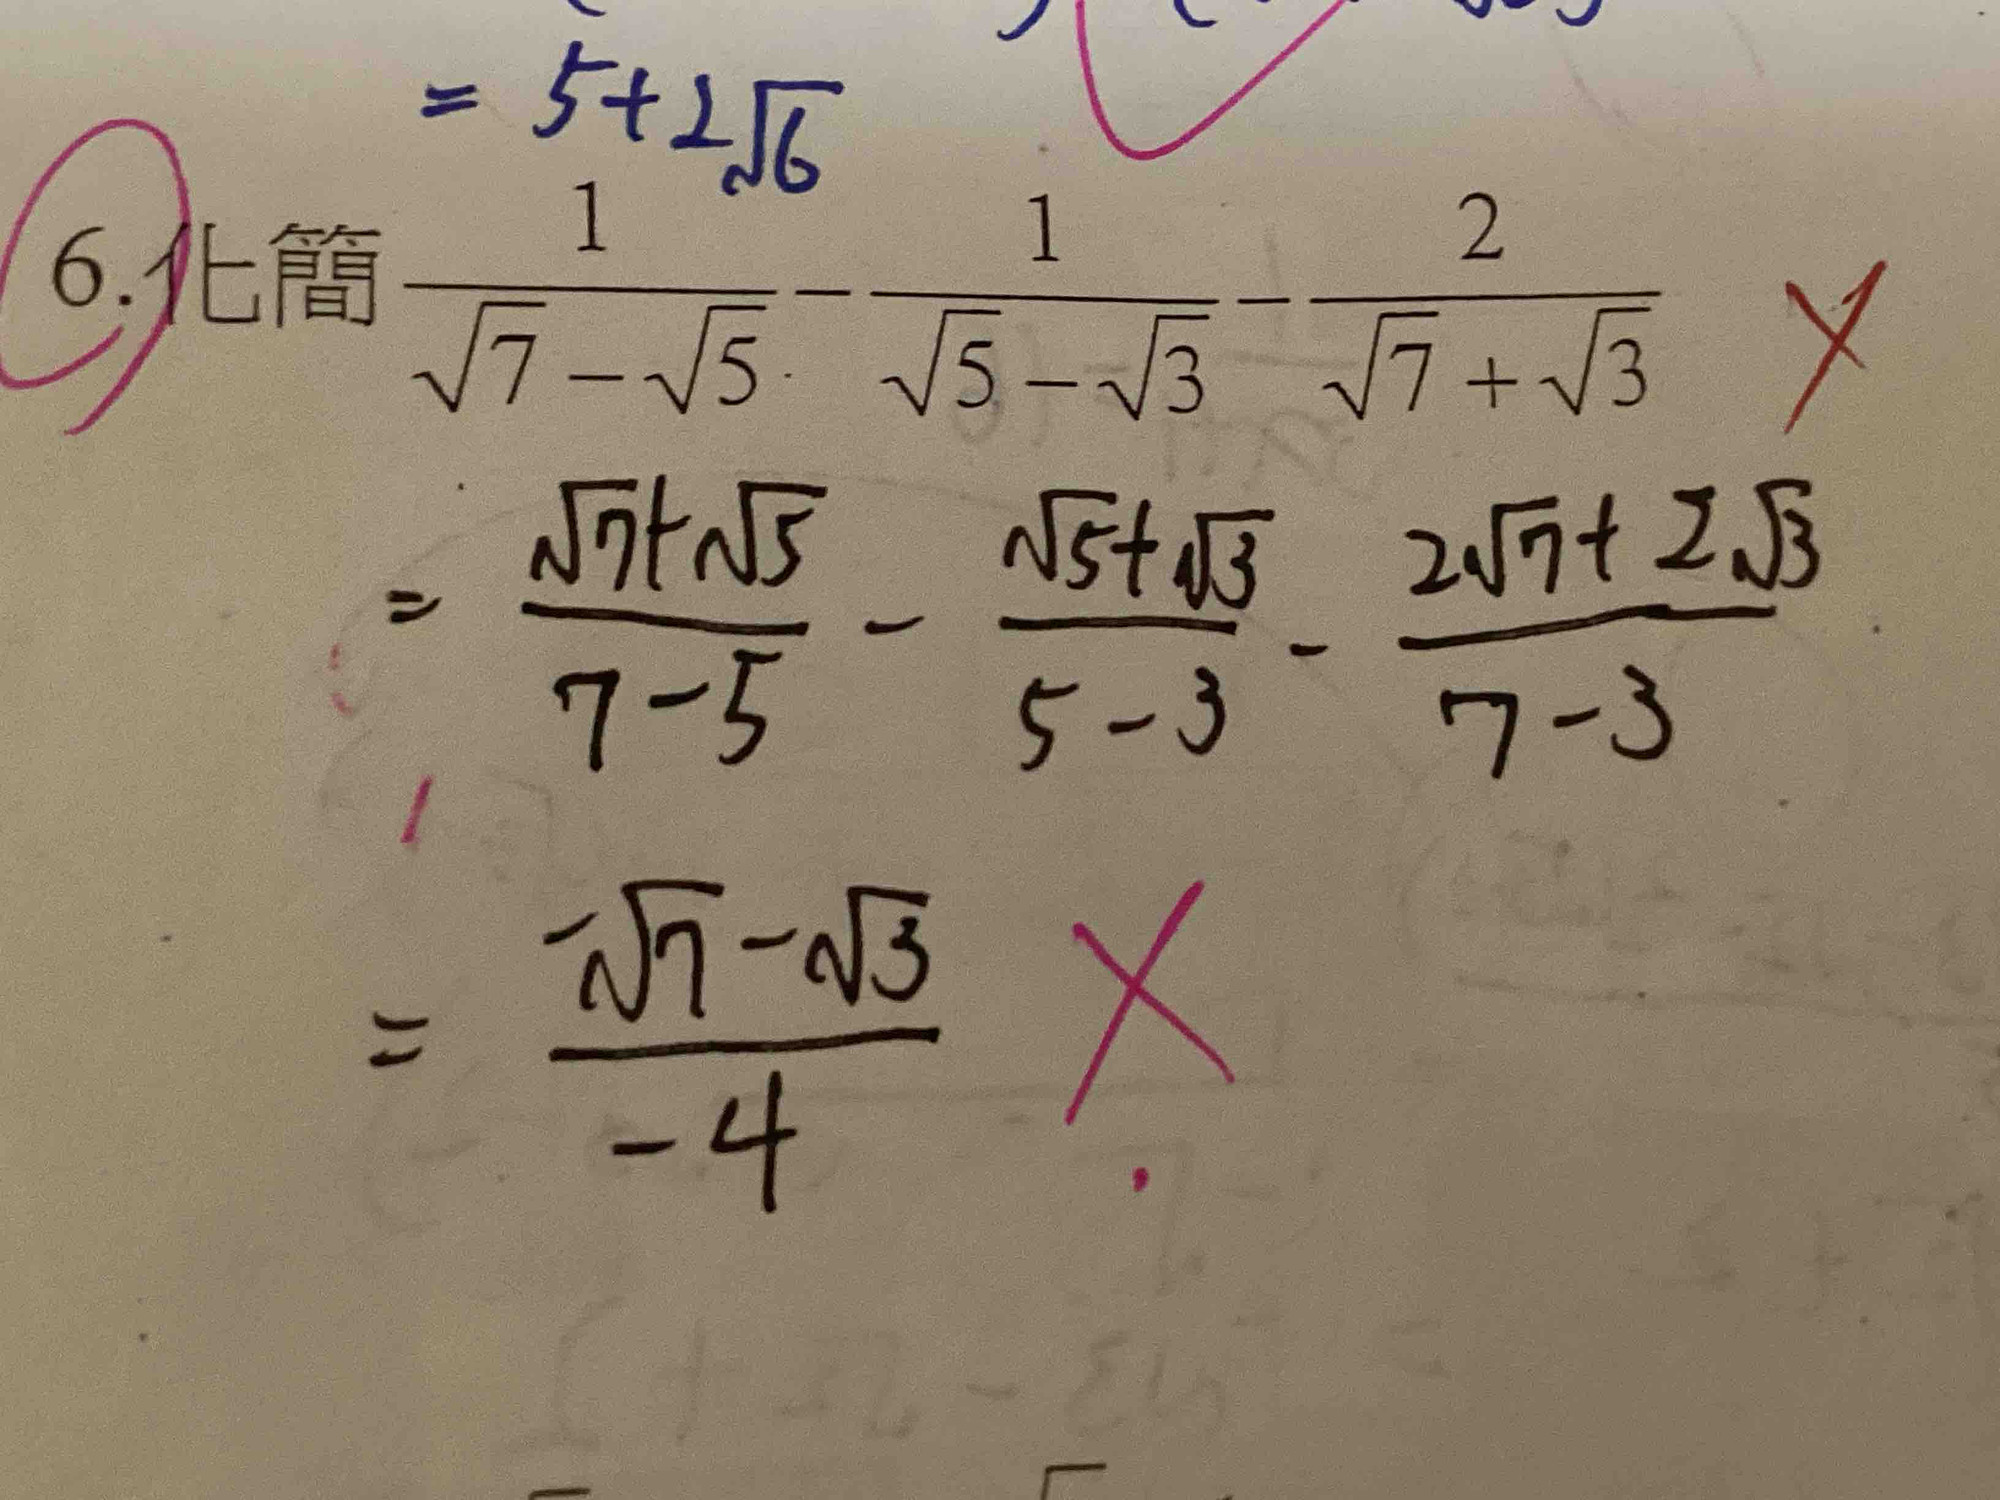 = 5+2√6
6.化簡 1/(√7−√5) − 1/(√5−√3) − 2/(√7+√3)
= (√7+√5)/(7−5) − (√5+√3)/(5−3) − (2√7+2√3)/(7−3)
= (−√7−√3)/(−4)